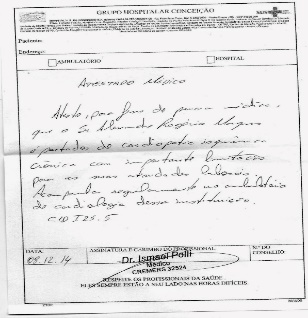 GRUPO HOSPITALAR CONCEIÇÃO
Paciente:
Endereço:
AMBULATÓRIO HOSPITAL
Atestado Médico
Atesto, para fins de
que o Sr Alexandre Rogério
é portador de cardiopatia isquêmica
crônica com importante limitação
para as suas atividades laborais.
Acompanha regularmente no ambulatório
de cardiologia dessa instituição.
CID I25.5
DATA: ASSINATURA E CARIMBO DO PROFISSIONAL Nº DO CONSELHO
09.12.14
Dr. Ismael Polli
Médico
CREMERS 32524
RESPEITE OS PROFISSIONAIS DA SAÚDE
ELES SEMPRE ESTÃO A SEU LADO NAS HORAS DIFÍCEIS.